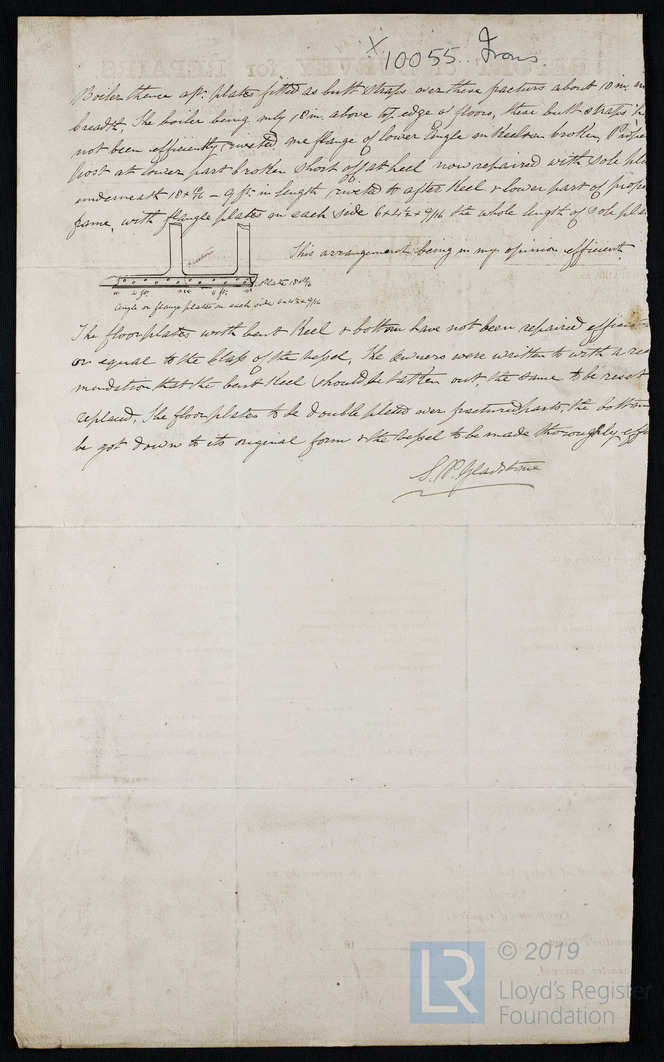 10055 Irons
Boiler thence aft. plates fitted as butt straps over these fractures about 10 in. in
breadth, The boiler being only 18 in. above top edge of floors, these butt straps h
not been efficiently riveted, one flange of lower angle on Keelson broken, Prope
post at lower part broken short off at heel now repaired with sole pla
underneath 18 x 10/16 - 9 ft. in length riveted to after Keel & lower part of prope
frame, with flange plates on each side 6 x 4½ x 9/16 the whole length of sole plate
This arrangement being in my opinion efficient.
4 ft. 4 ft. Plate 18 x 10/16
Angle or flange plates on each side 6 x 4½ x 9/16
The floorplates with bent Keel & bottom have not been repaired efficien
or equal to the Class of the vessel, The owners were written to with a reco
mendation that the bent Keel should be taken out, the same to be reset
replaced, The floorplates to be double plated over fractured parts, the bottom
be got down to its original form & the Vessel to be made thoroughly effi
S. P. Gladstone
LR © 2019
Lloyd's Register
Foundation